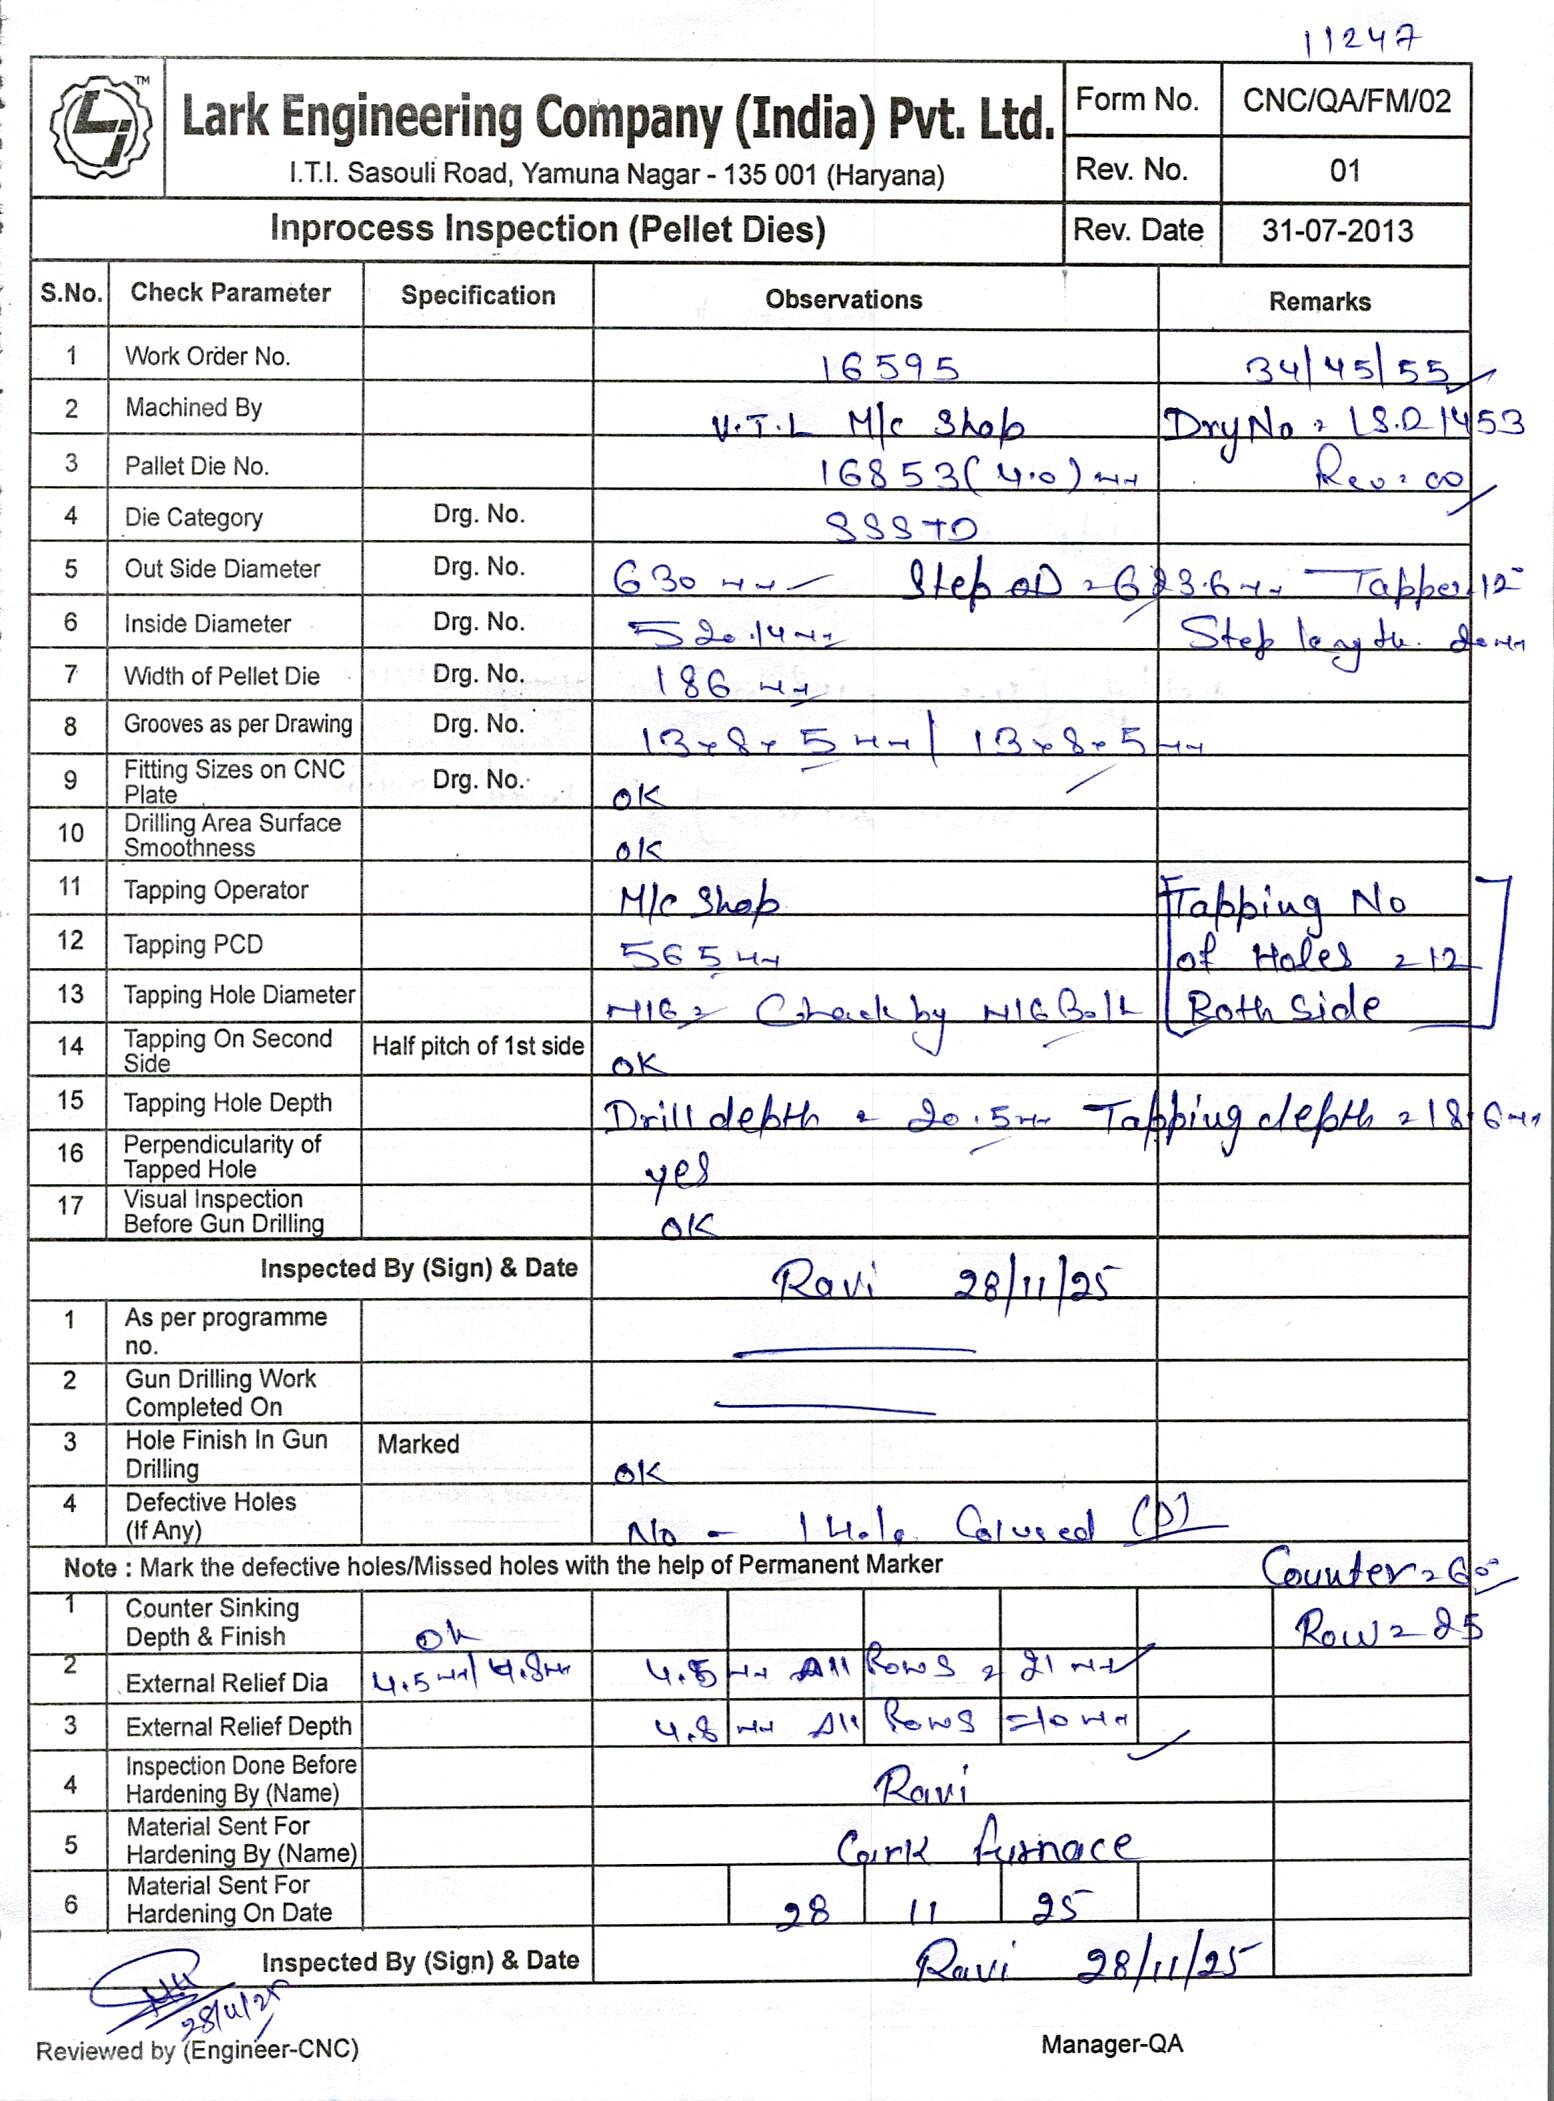 11247
TM
Lark Engineering Company (India) Pvt. Ltd.
I.T.I. Sasouli Road, Yamuna Nagar - 135 001 (Haryana)
Form No. CNC/QA/FM/02
Rev. No. 01
Inprocess Inspection (Pellet Dies) Rev. Date 31-07-2013
S.No. Check Parameter Specification Observations Remarks
1 Work Order No. 16595 34/45/55
2 Machined By V.T.L M/c Shop DryNo = LS.D1453
3 Pallet Die No. 16853(4.0)mm Rev = 00
4 Die Category Drg. No. SSSTD
5 Out Side Diameter Drg. No. 630 mm Step OD = 623.6mm Tapper 12°
6 Inside Diameter Drg. No. 520.14mm Step length. 20mm
7 Width of Pellet Die Drg. No. 186 mm
8 Grooves as per Drawing Drg. No. 13x8x5mm / 13x8x5mm
9 Fitting Sizes on CNC Plate Drg. No. OK
10 Drilling Area Surface Smoothness OK
11 Tapping Operator M/c Shop Tapping No
12 Tapping PCD 565mm of Holes = 12
13 Tapping Hole Diameter M16 = Check by M16 Bolt Both Side
14 Tapping On Second Side Half pitch of 1st side OK
15 Tapping Hole Depth Drill depth = 20.5mm Tapping depth = 18.6mm
16 Perpendicularity of Tapped Hole yes
17 Visual Inspection Before Gun Drilling OK
Inspected By (Sign) & Date Ravi 28/11/25
1 As per programme no.
2 Gun Drilling Work Completed On
3 Hole Finish In Gun Drilling Marked OK
4 Defective Holes (If Any) No - 1 Hole (D)
Note : Mark the defective holes/Missed holes with the help of Permanent Marker Counter = 60°
1 Counter Sinking Depth & Finish Ok Row = 25
2 External Relief Dia 4.5mm/4.8mm 4.5 mm All Rows = 21 mm
3 External Relief Depth 4.8 mm All Rows = 10 mm
4 Inspection Done Before Hardening By (Name) Ravi
5 Material Sent For Hardening By (Name) Cark furnace
6 Material Sent For Hardening On Date 28 11 25
Inspected By (Sign) & Date Ravi 28/11/25
28/11/25
Reviewed by (Engineer-CNC) Manager-QA